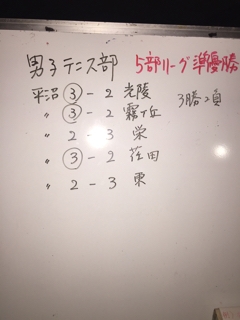 男子テニス部 5部リーグ準優勝
平沼 ③-2 光陵 3勝2負
〃 ③-2 霧が丘
〃 2-3 栄
〃 ③-2 荏田
〃 2-3 東